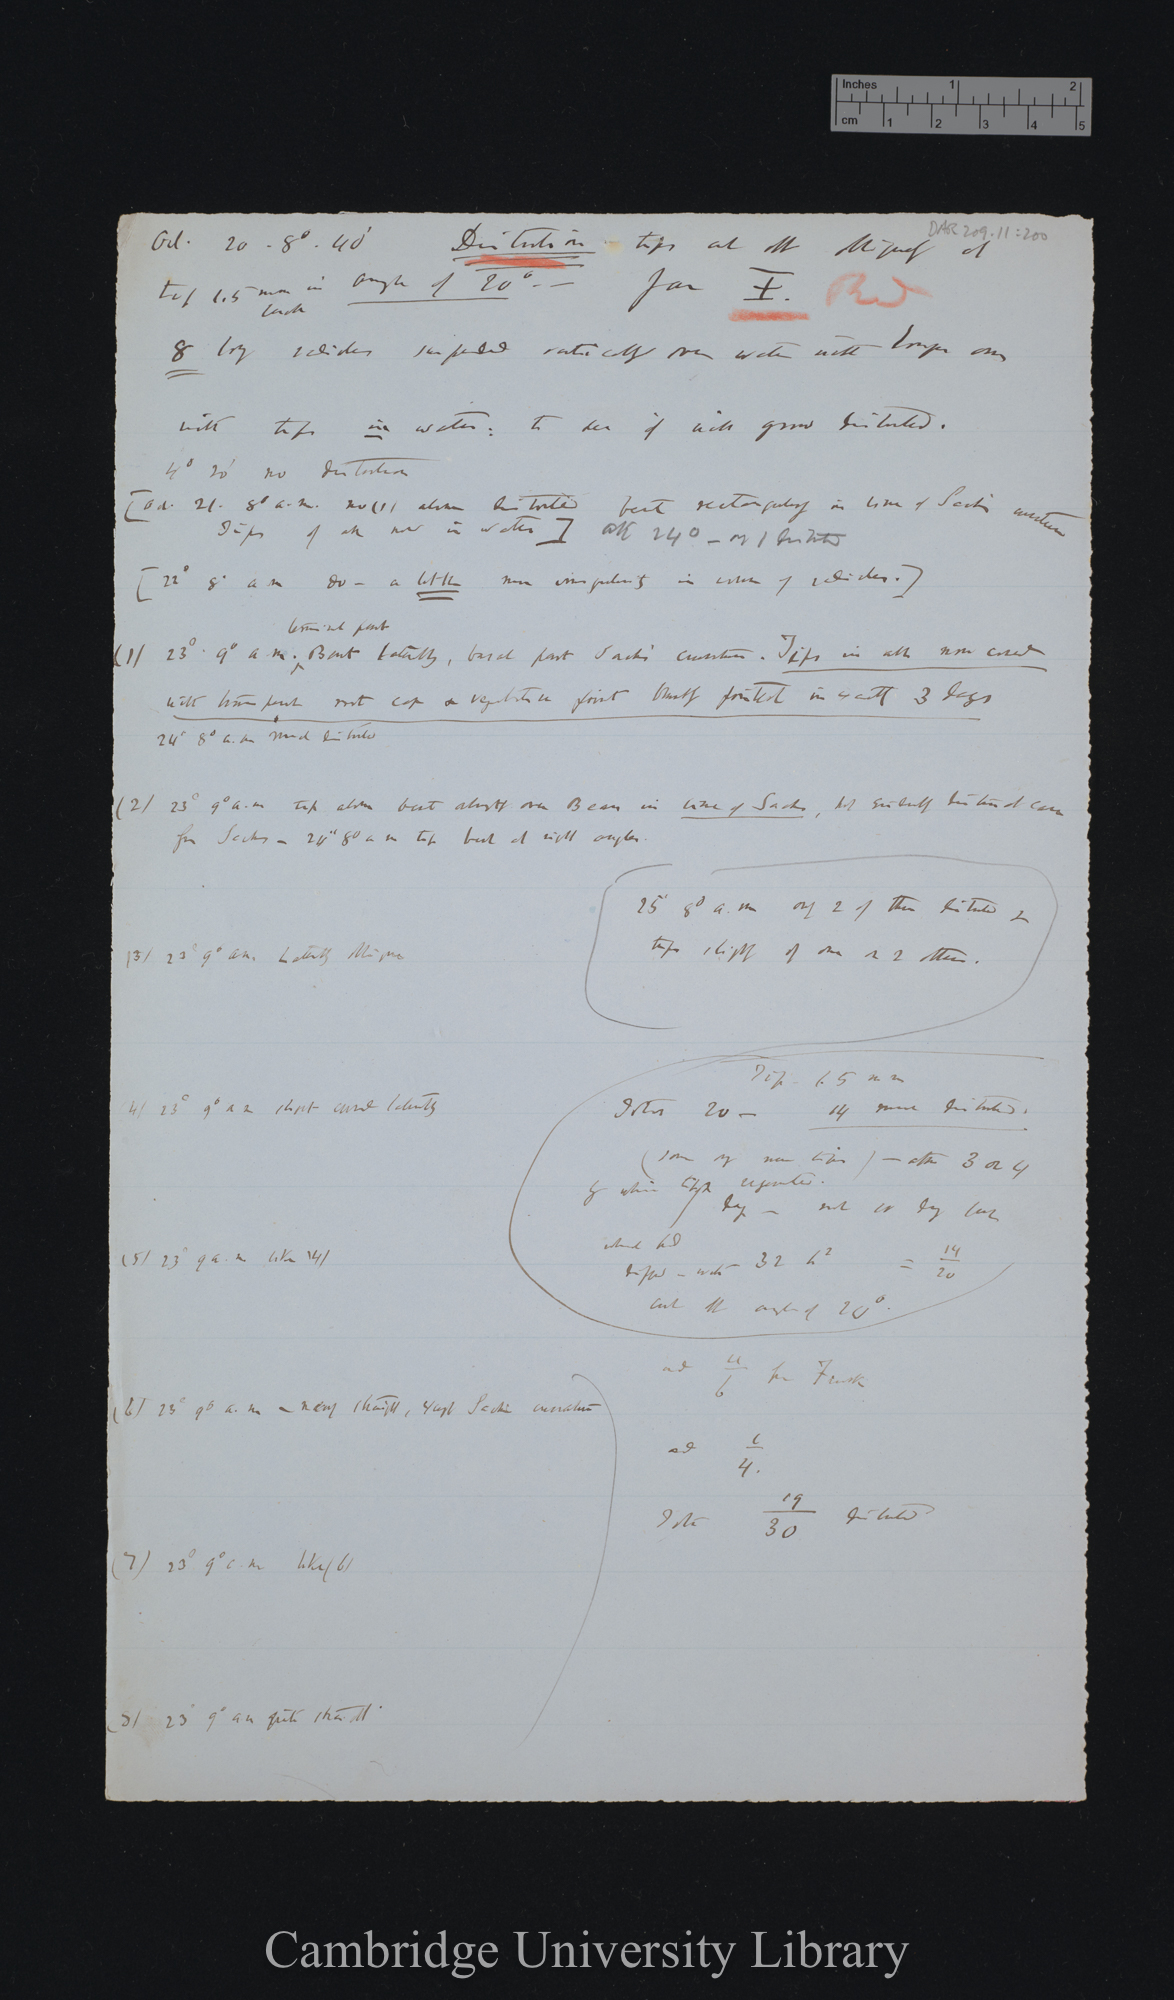 Inches 1 2
cm 1 2 3 4 5
DAR 209.11:200
Oct. 20 - 8° - 40' Distortion tips cut off obliquely at
tip 1.5 mm in angle of 20° --
length
for I. Red
8 long radicles suspended vertically over water with longer ones
with tips in water: to see if will grow distorted.
4° 20' no distortion
[Oct. 21. 8° a.m. no (1) alone distorted bent rectangularly in line of Sachs curvature
Tips of all now in water] at 24° - only 1 distorted
[22° 8° a.m. Do - a little more irregularity in of radicles.]
terminal part
(1) 23° 9° a.m. Bent laterally, basal part Sachs' curvature. Tips in all now covered
with transparent root cap & vegetative point bluntly pointed in exactly 3 days
24° 8° a.m. much distorted
(2) 23° 9° a.m. tip alone bent abruptly over Bean in line of Sachs, but evidently distinct case
from Sachs - 24° 8° a.m. tip bent at right angles.
25° 8° a.m. only 2 of these distorted &
tips slightly of one or 2 others.
(3) 23° 9° a.m. laterally oblique
Tip - 1.5 mm
(4) 23° 9° a.m. slight curved laterally
Total 20 - 14 much distorted.
(some only near tips) - after 3 or 4
by which tips regenerated.
days -
(5) 23° 9 a.m. like (4)
which had
- water 32 h² = 14/20
cut off angle of 20°.
and 4/6 for Frank
(6) 23° 9° a.m. - nearly straight, except Sachs' curvature
and 1/4.
Total 19/30 distorted
(7) 23° 9° a.m. like (6)
(8) 23° 9° a.m. quite straight
Cambridge University Library